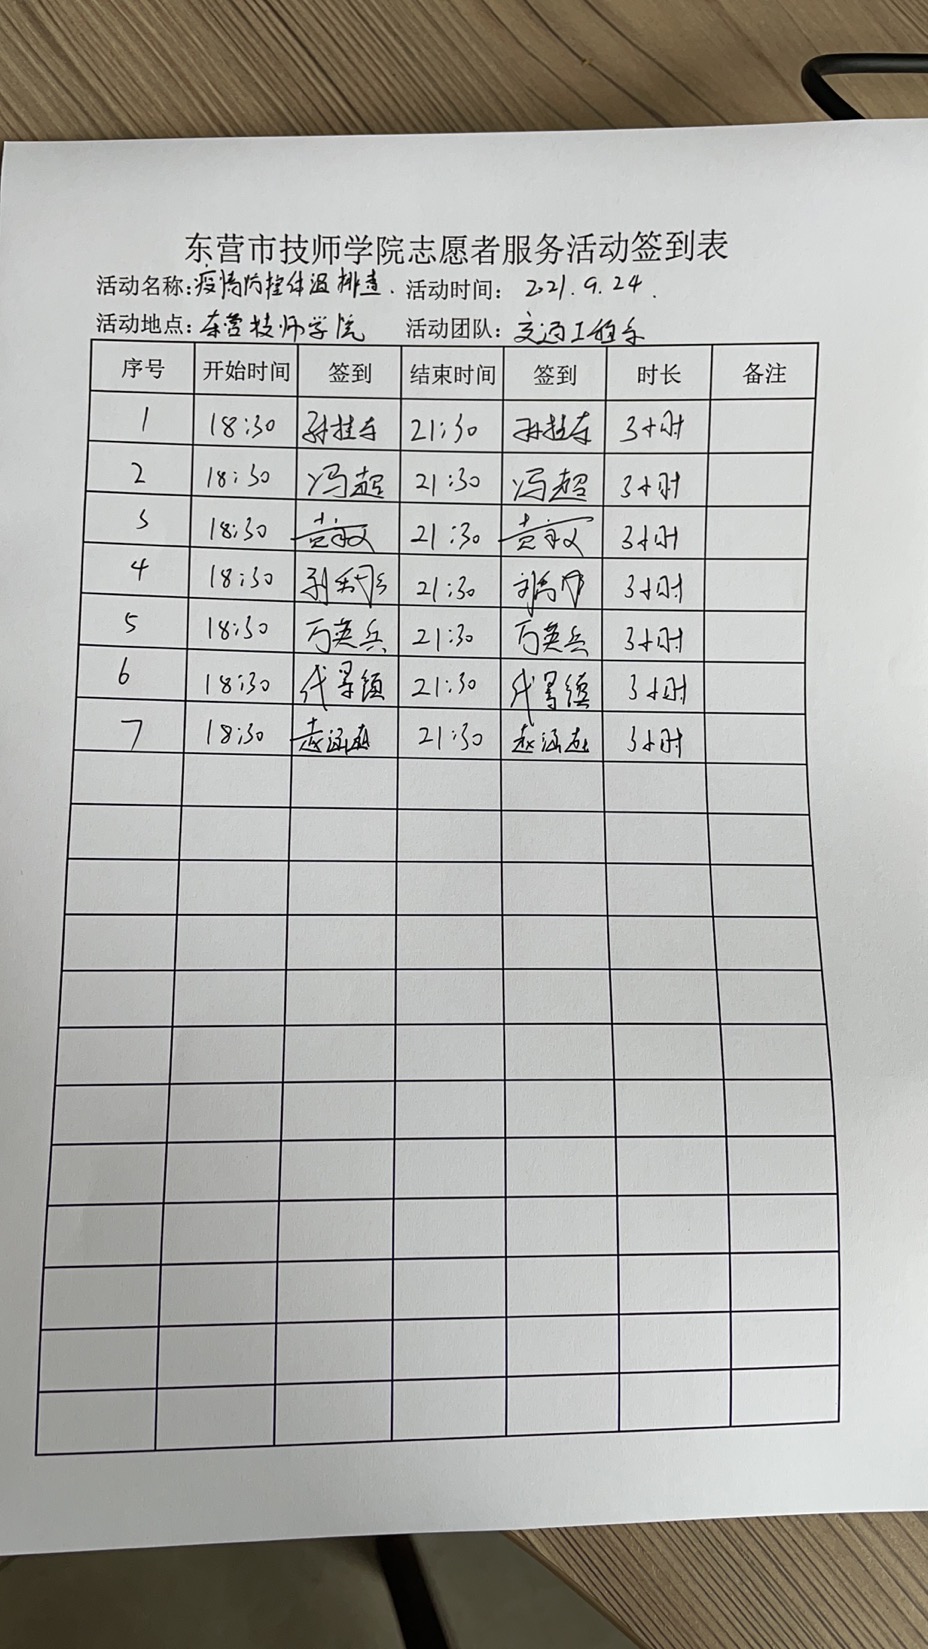 东营市技师学院志愿者服务活动签到表
活动名称:疫情防控体温排查. 活动时间: 2021.9.24.
活动地点: 东营技师学院 活动团队: 交通工程系
序号 开始时间 签到 结束时间 签到 时长 备注
1 18:30 21:30 3小时
2 18:30 冯超 21:30 冯超 3小时
3 18:30 21:30 3小时
4 18:30 21:30 3小时
5 18:30 万英兵 21:30 万英兵 3小时
6 18:30 代景 21:30 代景 3小时
7 18:30 赵涵 21:30 赵涵 3小时